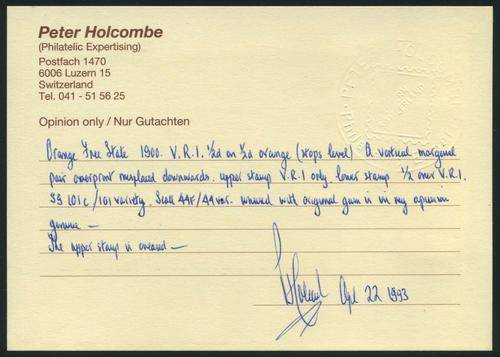 Peter Holcombe
(Philatelic Expertising)
Postfach 1470
6006 Luzern 15
Switzerland
Tel. 041 - 51 56 25
Opinion only / Nur Gutachten
Orange Free State 1900. V.R.I. ½d on ½d orange (stops level) A vertical marginal
pair overprint misplaced downwards. upper stamp V.R.I only. lower stamp ½ over V.R.I.
SG 101c/101 variety. Scott 44F/44var. unused with original gum is in my opinion
genuine —
The upper stamp is creased —
Holcombe April 22 1993